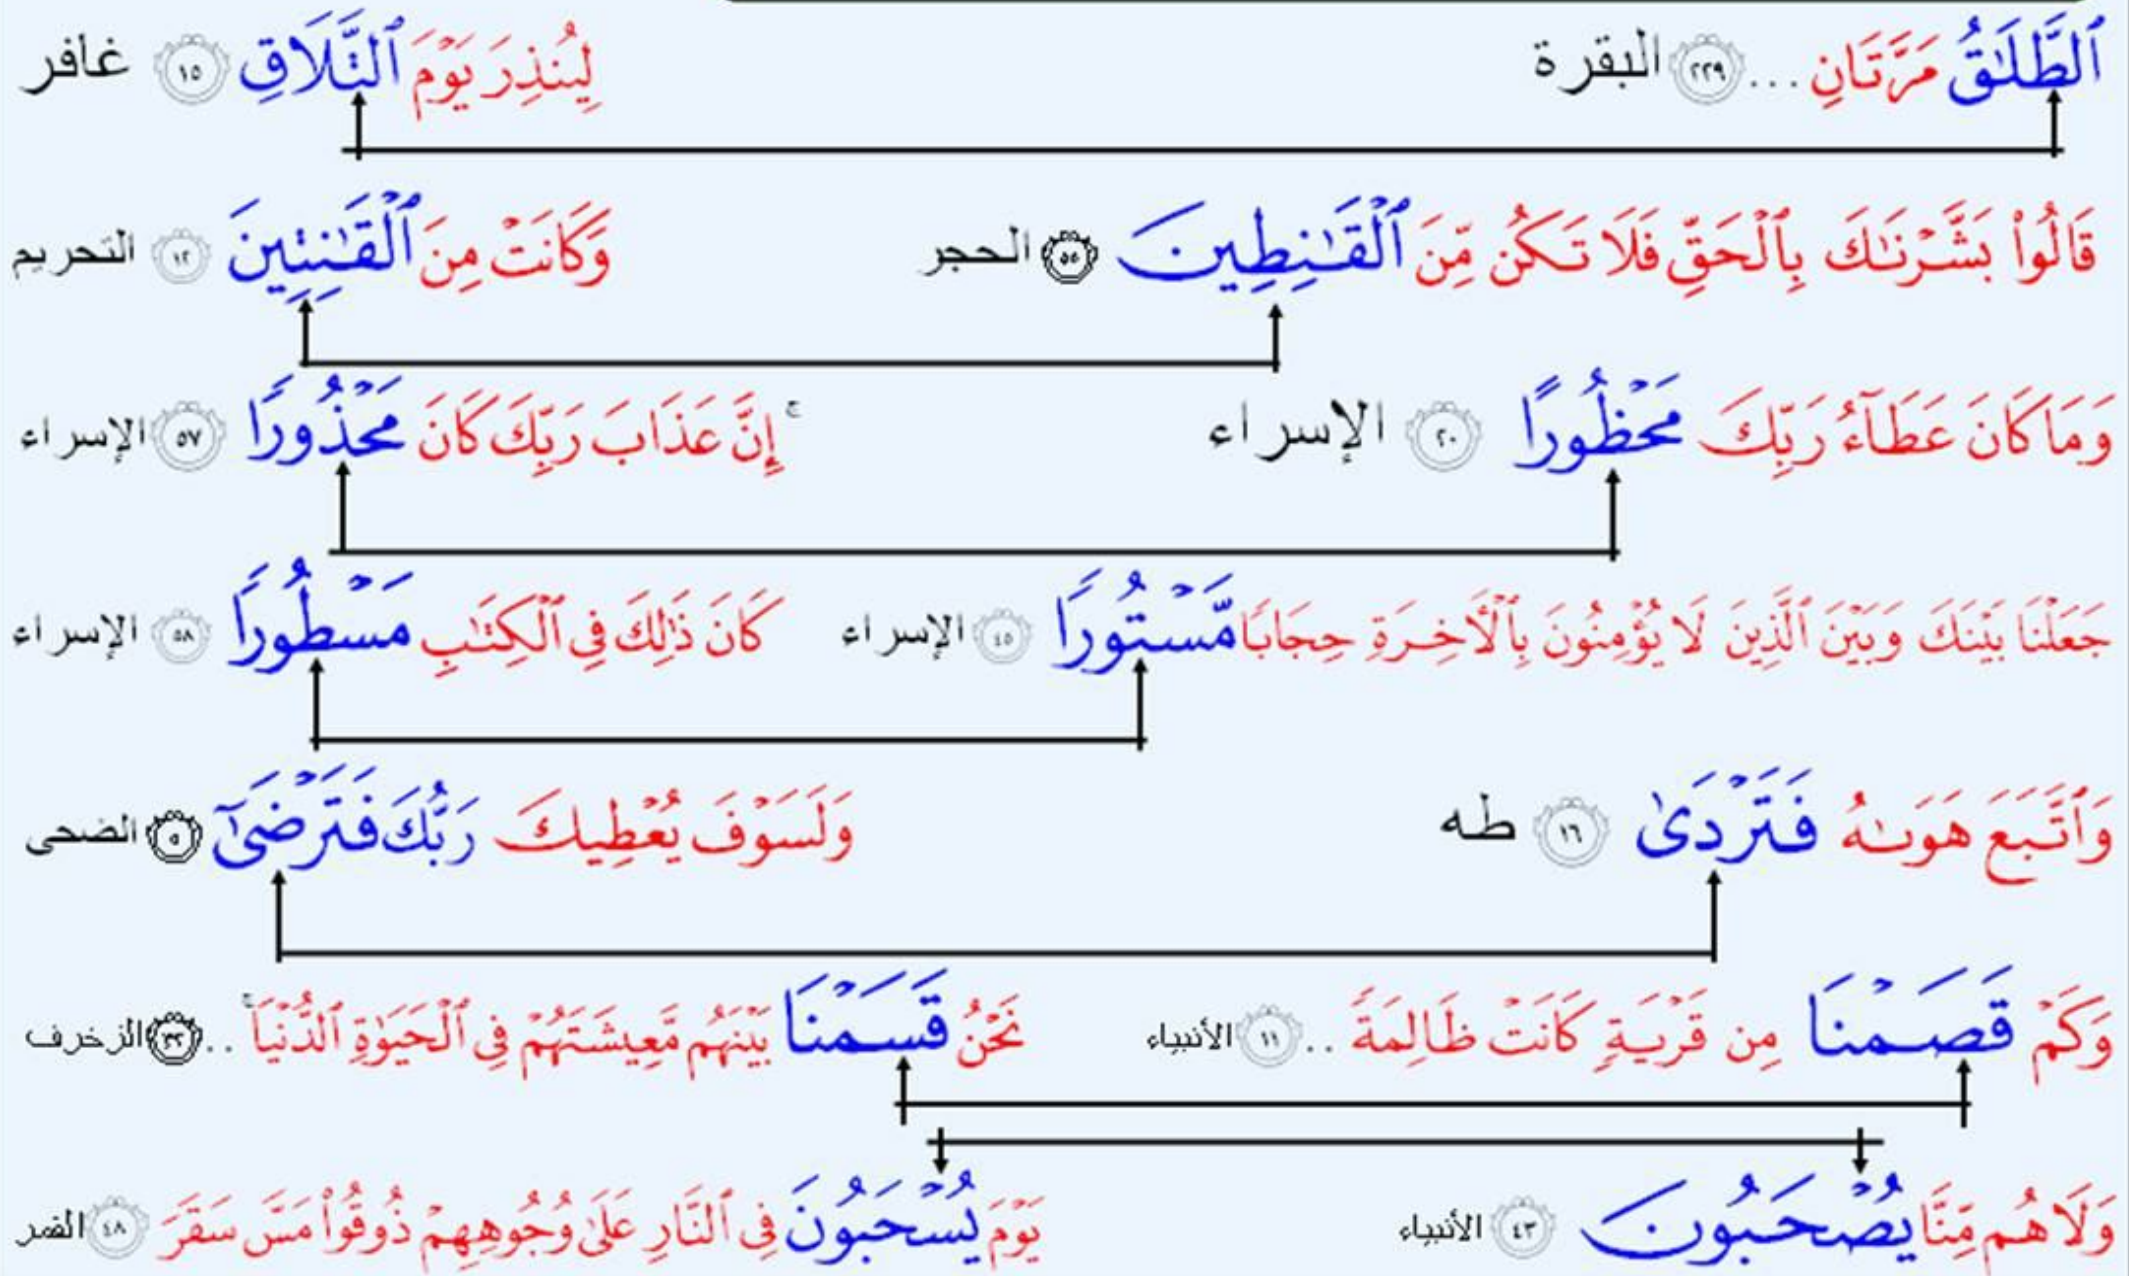 ٱلطَّلَٰقُ مَرَّتَانِ ... ٢٢٩ البقرة لِيُنذِرَ يَوْمَ ٱلتَّلَاقِ ١٥ غافر
قَالُوا۟ بَشَّرْنَٰكَ بِٱلْحَقِّ فَلَا تَكُن مِّنَ ٱلْقَٰنِطِينَ ٥٥ الحجر وَكَانَتْ مِنَ ٱلْقَٰنِتِينَ ١٢ التحريم
وَمَا كَانَ عَطَآءُ رَبِّكَ مَحْظُورًا ٢٠ الإسراء إِنَّ عَذَابَ رَبِّكَ كَانَ مَحْذُورًا ٥٧ الإسراء
جَعَلْنَا بَيْنَكَ وَبَيْنَ ٱلَّذِينَ لَا يُؤْمِنُونَ بِٱلْأَخِرَةِ حِجَابًا مَّسْتُورًا ٤٥ الإسراء كَانَ ذَٰلِكَ فِى ٱلْكِتَٰبِ مَسْطُورًا ٥٨ الإسراء
وَٱتَّبَعَ هَوَىٰهُ فَتَرْدَىٰ ١٦ طه وَلَسَوْفَ يُعْطِيكَ رَبُّكَ فَتَرْضَىٰٓ ٥ الضحى
وَكَمْ قَصَمْنَا مِن قَرْيَةٍ كَانَتْ ظَالِمَةً .. ١١ الأنبياء نَحْنُ قَسَمْنَا بَيْنَهُم مَّعِيشَتَهُمْ فِى ٱلْحَيَوٰةِ ٱلدُّنْيَا ۚ .. ٣٢ الزخرف
وَلَا هُم مِّنَّا يُصْحَبُونَ ٤٣ الأنبياء يَوْمَ يُسْحَبُونَ فِى ٱلنَّارِ عَلَىٰ وُجُوهِهِمْ ذُوقُوا۟ مَسَّ سَقَرَ ٤٨ القمر